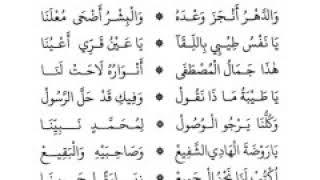 وَالدَّهْرُ أَنْجَزَ وَعْدَهُ * وَالْبِشْرُ أَضْحَى مُعْلَنَا
يَا نَفْسُ طِيْبِي بِاللِّقَا * يَا عَيْنُ قَرِّي أَعْيُنَا
هٰذَا جَمَالُ الْمُصْطَفَى * أَنْوَارُهُ لَاحَتْ لَنَا
يَا طَيْبَةُ مَا ذَا نَقُول * وَفِيكِ قَدْ حَلَّ الرَّسُولْ
وَكُلُّنَا يَرْجُو الْوُصُول * لِمُحَمَّدٍ نَبِيِّنَا
يَا رَوْضَةَ الْهَادِي الشَّفِيعِ * وَصَاحِبَيْهِ وَالْبَقِيعِ